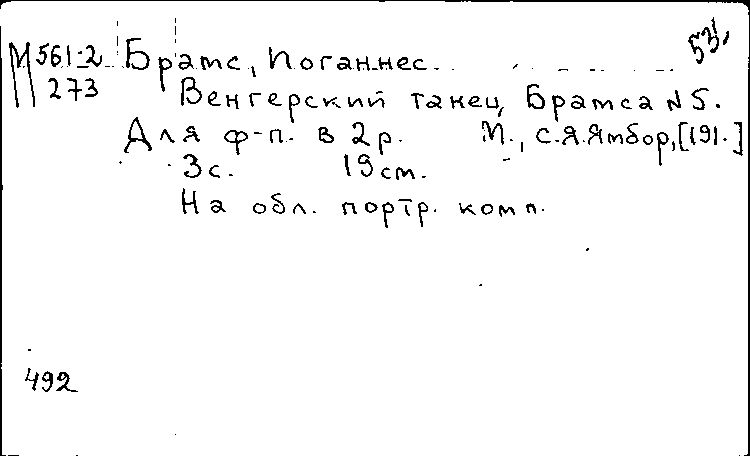 53.
М 561-2 Брамс, Иоганнес.
273 Венгерский танец Брамса N 5.
Для ф-п. в 2 р. М., С.Я.Ямбор, [191.]
3 с. 19 см.
На обл. портр. комп.
492